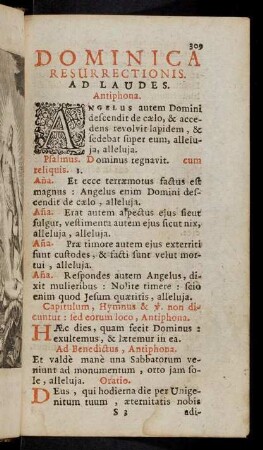 309
DOMINICA
RESURRECTIONIS.
AD LAUDES.
Antiphona.
ANGELUS autem Domini
descendit de cælo, & acce-
dens revolvit lapidem, &
sedebat super eum, allelu-
ja, alleluja.
Psalmus. Dominus regnavit. cum
reliquis. 1.
Aña. Et ecce terræmotus factus est
magnus : Angelus enim Domini des-
cendit de cælo, alleluja.
Aña. Erat autem aspectus ejus sicut
fulgur, vestimenta autem ejus sicut nix,
alleluja, alleluja.
Aña. Præ timore autem ejus exterriti
sunt custodes, & facti sunt velut mor-
tui, alleluja.
Aña. Respondes autem Angelus, di-
xit mulieribus : Nolite timere : scio
enim quod Jesum quæritis, alleluja.
Capitulum, Hymnus & ℣. non di-
cuntur : sed eorum loco, Antiphona.
HÆc dies, quam fecit Dominus :
exultemus, & lætemur in ea.
Ad Benedictus, Antiphona.
Et valdè manè una Sabbatorum ve-
niunt ad monumentum, orto jam so-
le, alleluja. Oratio.
DEus, qui hodierna die per Unige-
nitum tuum, æternitatis nobis
S 3 adi-